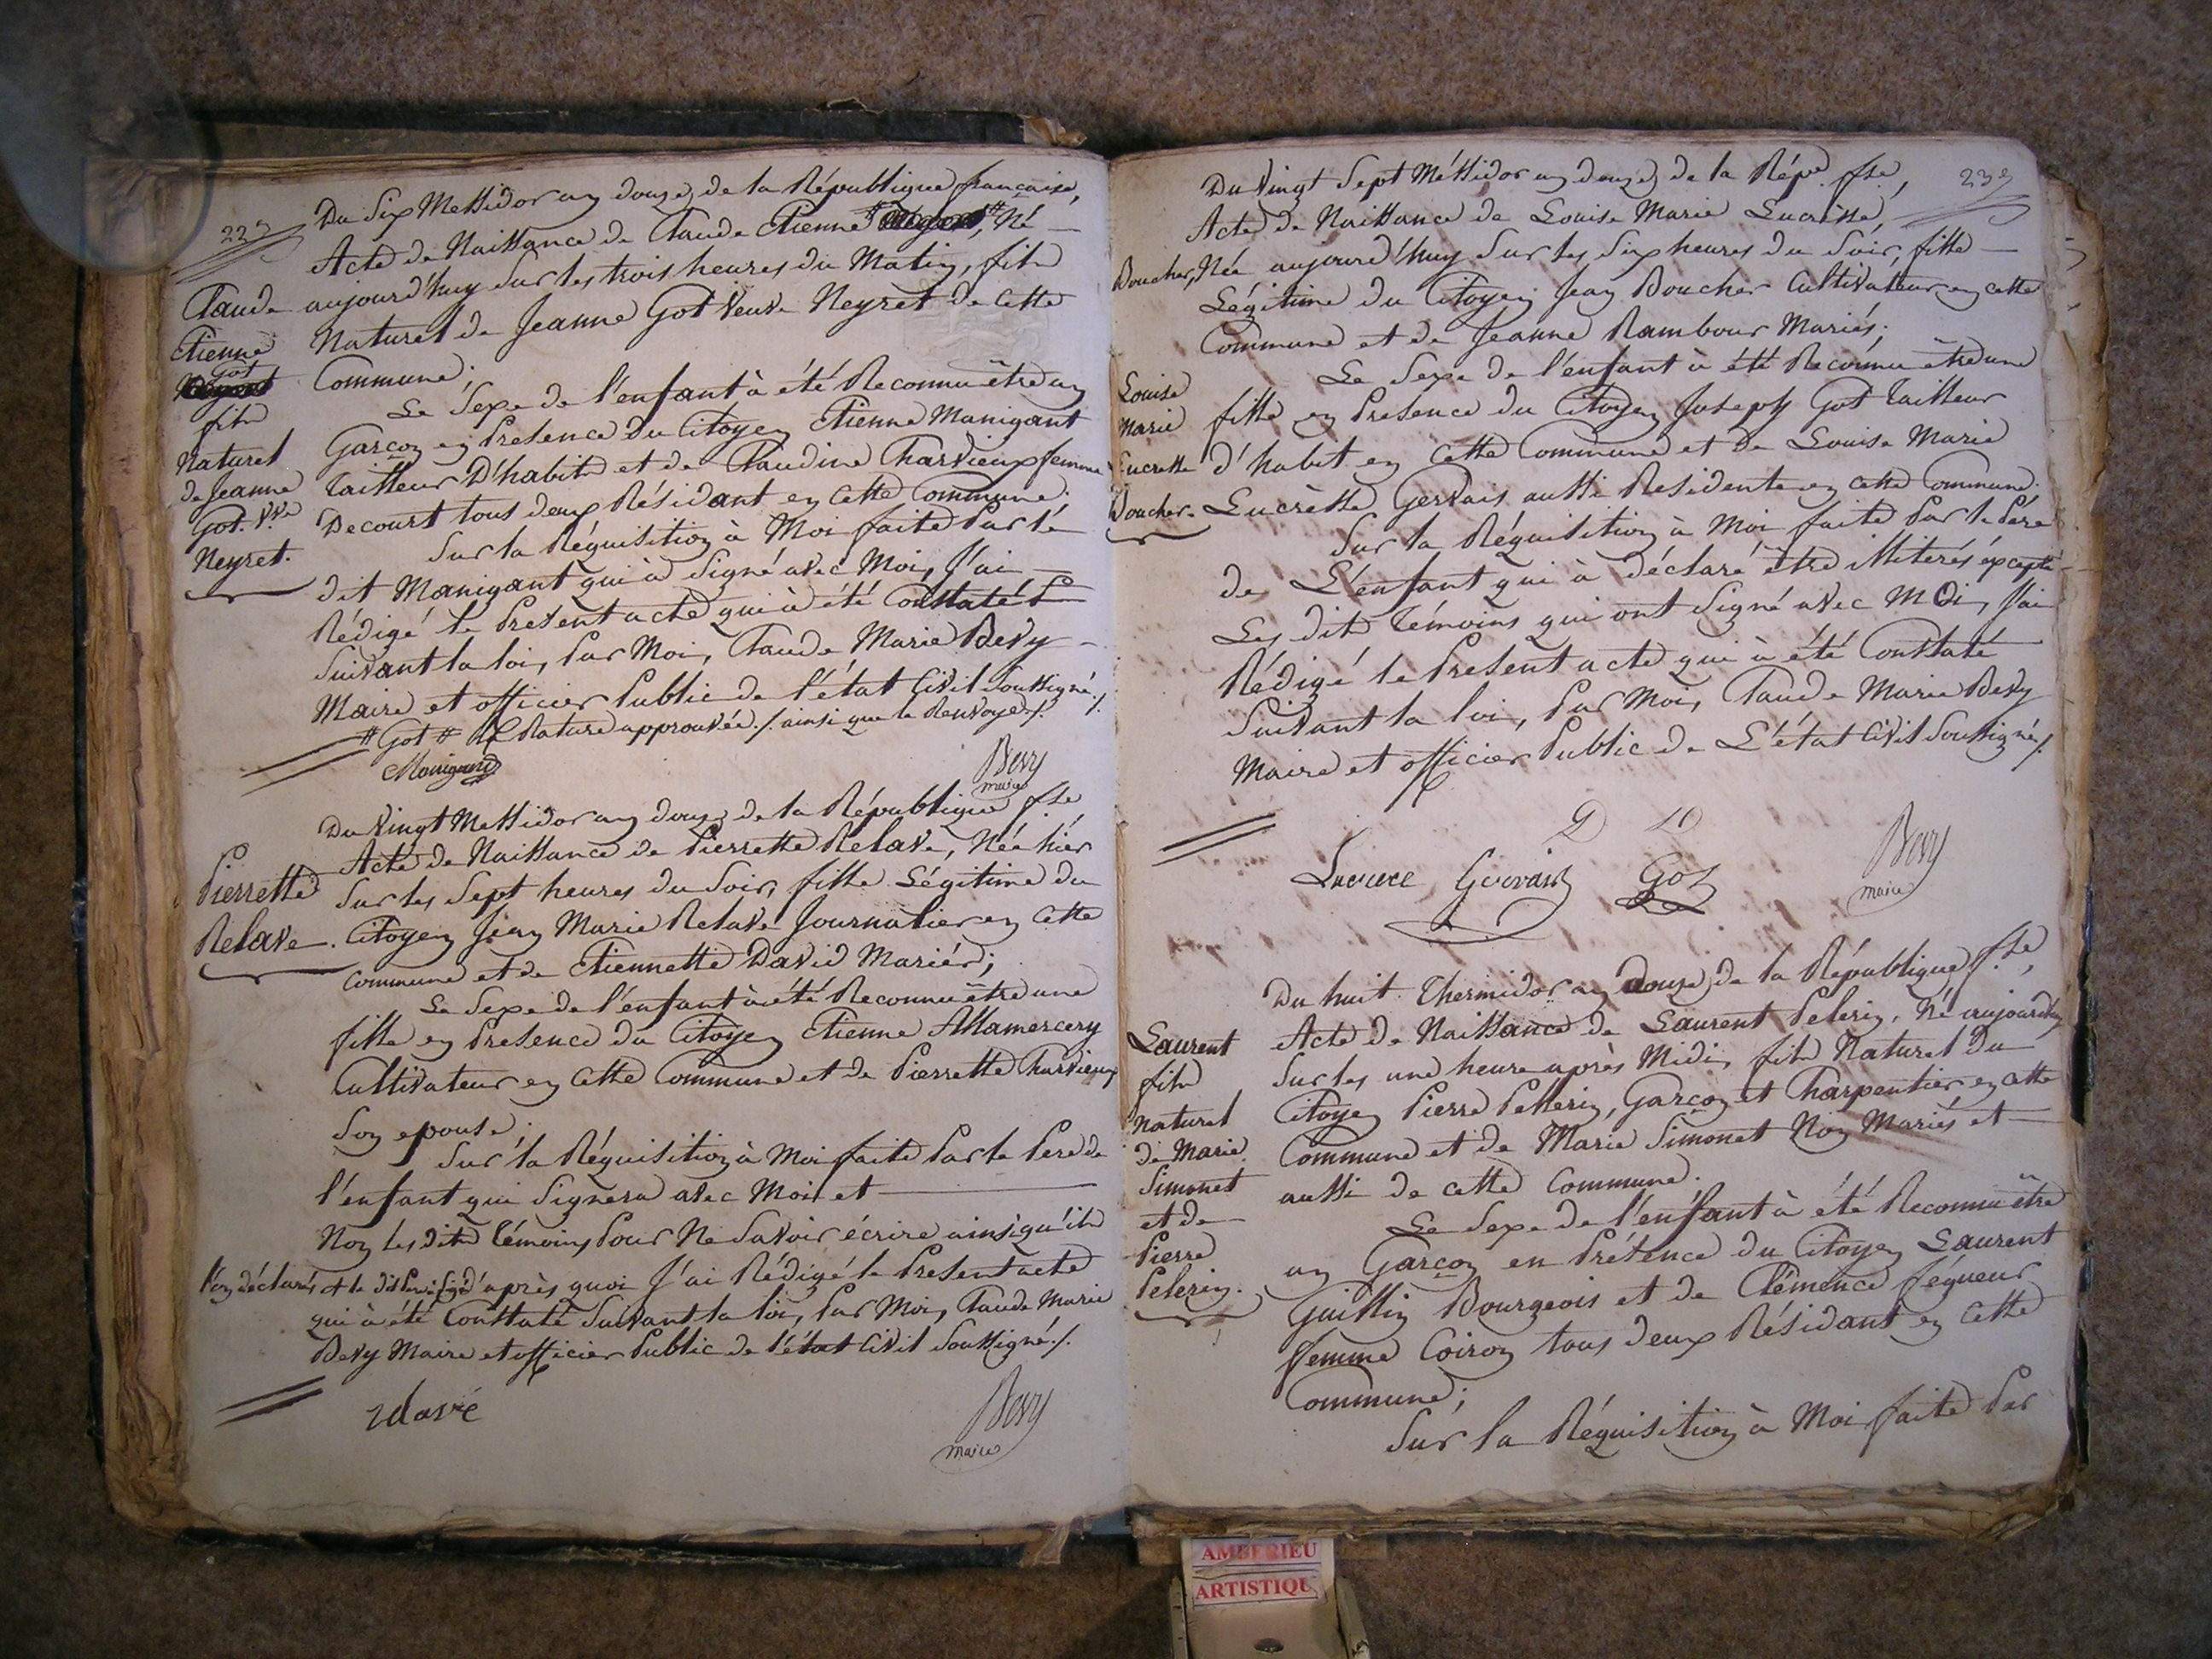 22e
Du Six Messidor an douze de la République française,
Acte de Naissance de Claude Etienne # #, Né
aujourd'huy sur les trois heures du Matin, fils
Naturel de Jeanne Got veuve Neyret de cette
Commune.
Le Sexe de l'enfant à été Reconnu être un
Garçon en Présence du Citoyen Etienne Manigant
Tailleur D'habits et de Claudine Charvieux femme
Decourt tous deux Résidant en cette Commune.
Sur la Réquisition à Moi faite Par le
dit Manigant qui à signé avec Moi, J'ai
Rédigé le Present acte qui à été Constaté
Suivant la loi, Par Moi, Claude Marie Bevy
Maire et officier Public de l'état Civil Soussigné ./.
# Got # Rature approuvée ./. ainsi que le Renvoye ./.
Claude
Etienne
Got
fils
Naturel
de Jeanne
Got. Vve
Neyret.
Manigand
Bevy
maire
Du Vingt Messidor an douze de la République fse,
Acte de Naissance de Pierrette Relave, Née hier
Sur les Sept heures du Soir, fille Légitime du
Citoyen Jean Marie Relave Journalier en Cette
Commune et de Etiennette David Mariés;
Le Sexe de l'enfant à été Reconnu être une
fille en Presence du Citoyen Etienne Allamercery
Cultivateur en Cette Commune et de Pierrette Charvieux
Son epouse.
Sur la Réquisition à Moi faite Par le Pere de
l'enfant qui Signera avec Moi et
Non les dits témoins Pour Ne Savoir écrire ainsi qu'ils
l'on déclarés d'après quoi J'ai Rédigé le Present acte
qui à été Constaté Suivant la loi, Par Moi, Claude Marie
Bevy Maire et officier Public de l'état Civil Soussigné ./.
Pierrette
Relave.
relavé
Bevy
maire
23e
Du Vingt Sept Messidor an douze de la Répe fse,
Acte de Naissance de Louise Marie Lucresse,
Boucher, Née aujourd'huy Sur les Six heures du Soir, fille
Légitime du Citoyen Jean Boucher Cultivateur en cette
Commune et de Jeanne Rambour Mariés;
Le Sexe de l'enfant à été Reconnu être une
fille en Presence du Citoyen Joseph Got Tailleur
d'habit en Cette Commune et de Louise Marie
Lucresse Gervais aussi Residente en cette Commune.
Sur la Réquisition à Moi faite Par le Pere
de L'enfant qui à déclaré être illiterés éxcepté
Les dits témoins qui ont Signé avec Moi, J'ai
Rédigé le Present acte qui à été Constaté
Suivant la loi, Par Moi, Claude Marie Bevy
Maire et officier Public de L'état Civil Soussigné ./.
Louise
Marie
Lucresse
Boucher.
Gervais
Got
Bevy
maire
Du huit Thermidor an Douze de la République fse,
Acte de Naissance de Laurent Pelerin, Né aujourdhuy
Sur les une heure après Midi, fils Naturel du
Citoyen Pierre Pellerin, Garçon et Charpentier en cette
Commune et de Marie Simonet Non Mariés et
aussi de cette Commune.
Le Sexe de l'enfant à été Reconnu être
un Garçon en Présence du Citoyen Laurent
Guillin Bourgeois et de Clémence Fégueur
femme Coiron tous deux Résidant en Cette
Commune;
Sur la Réquisition à Moi faite Par
Laurent
fils
naturel
de Marie
Simonet
et de
Pierre
Pelerin.
AMBERIEU
ARTISTIQU